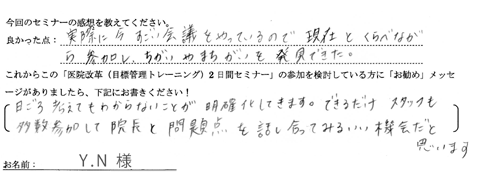 今回のセミナーの感想を教えてください。
良かった点：実際に今すごい会議をやっているので現在とくらべなが
ら参加し、ちがいやまちがいを発見できた。
これからこの「医院改革（目標管理トレーニング）２日間セミナー」の参加を検討している方に「お勧め」メッセ
ージがありましたら、下記にお書きください！
日ごろ考えてもわからないことが明確化してきます。できるだけスタッフも
多数参加して院長と問題点を話し合ってみるいい機会だと
思います
お名前： Y.N 様